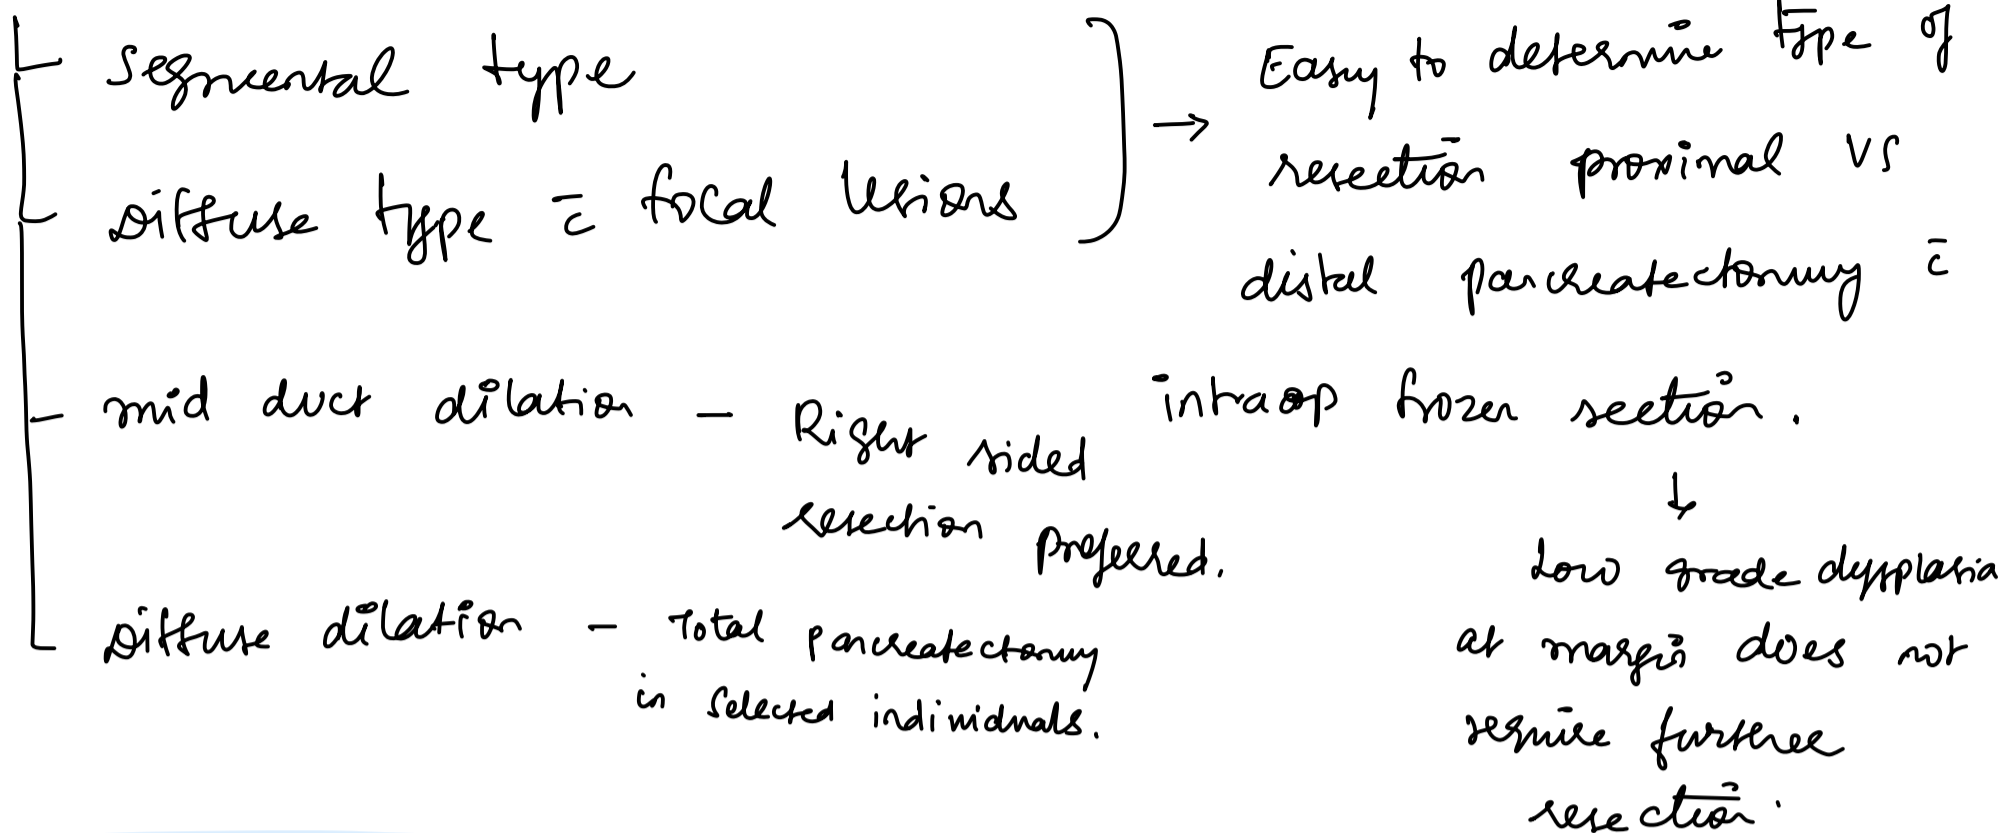 Segmental type
Diffuse type c̄ focal lesions
→ Easy to determine type of
resection proximal vs
distal pancreatectomy c̄
intraop frozen section.
↓
Low grade dysplasia
at margin does not
require further
resection.
mid duct dilation – Right sided
resection preferred.
Diffuse dilation – Total pancreatectomy
in selected individuals.